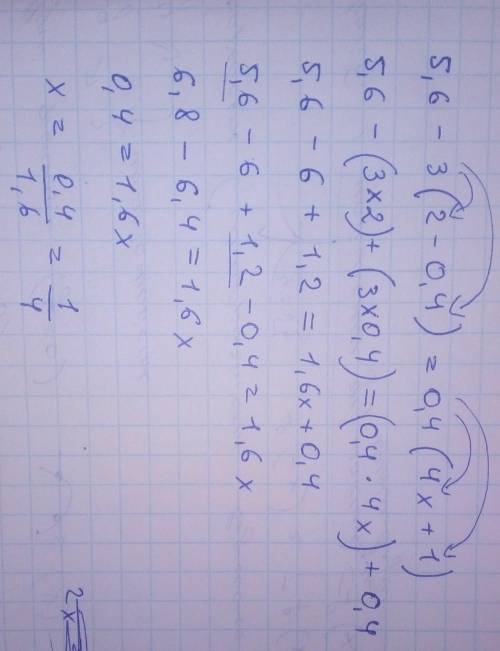 5,6 - 3 (2 - 0,4) = 0,4 (4x + 1)
5,6 - (3x2) + (3x0,4) = (0,4 · 4x) + 0,4
5,6 - 6 + 1,2 = 1,6x + 0,4
5,6 - 6 + 1,2 - 0,4 = 1,6 x
6,8 - 6,4 = 1,6 x
0,4 = 1,6x
x = 0,4/1,6 = 1/4